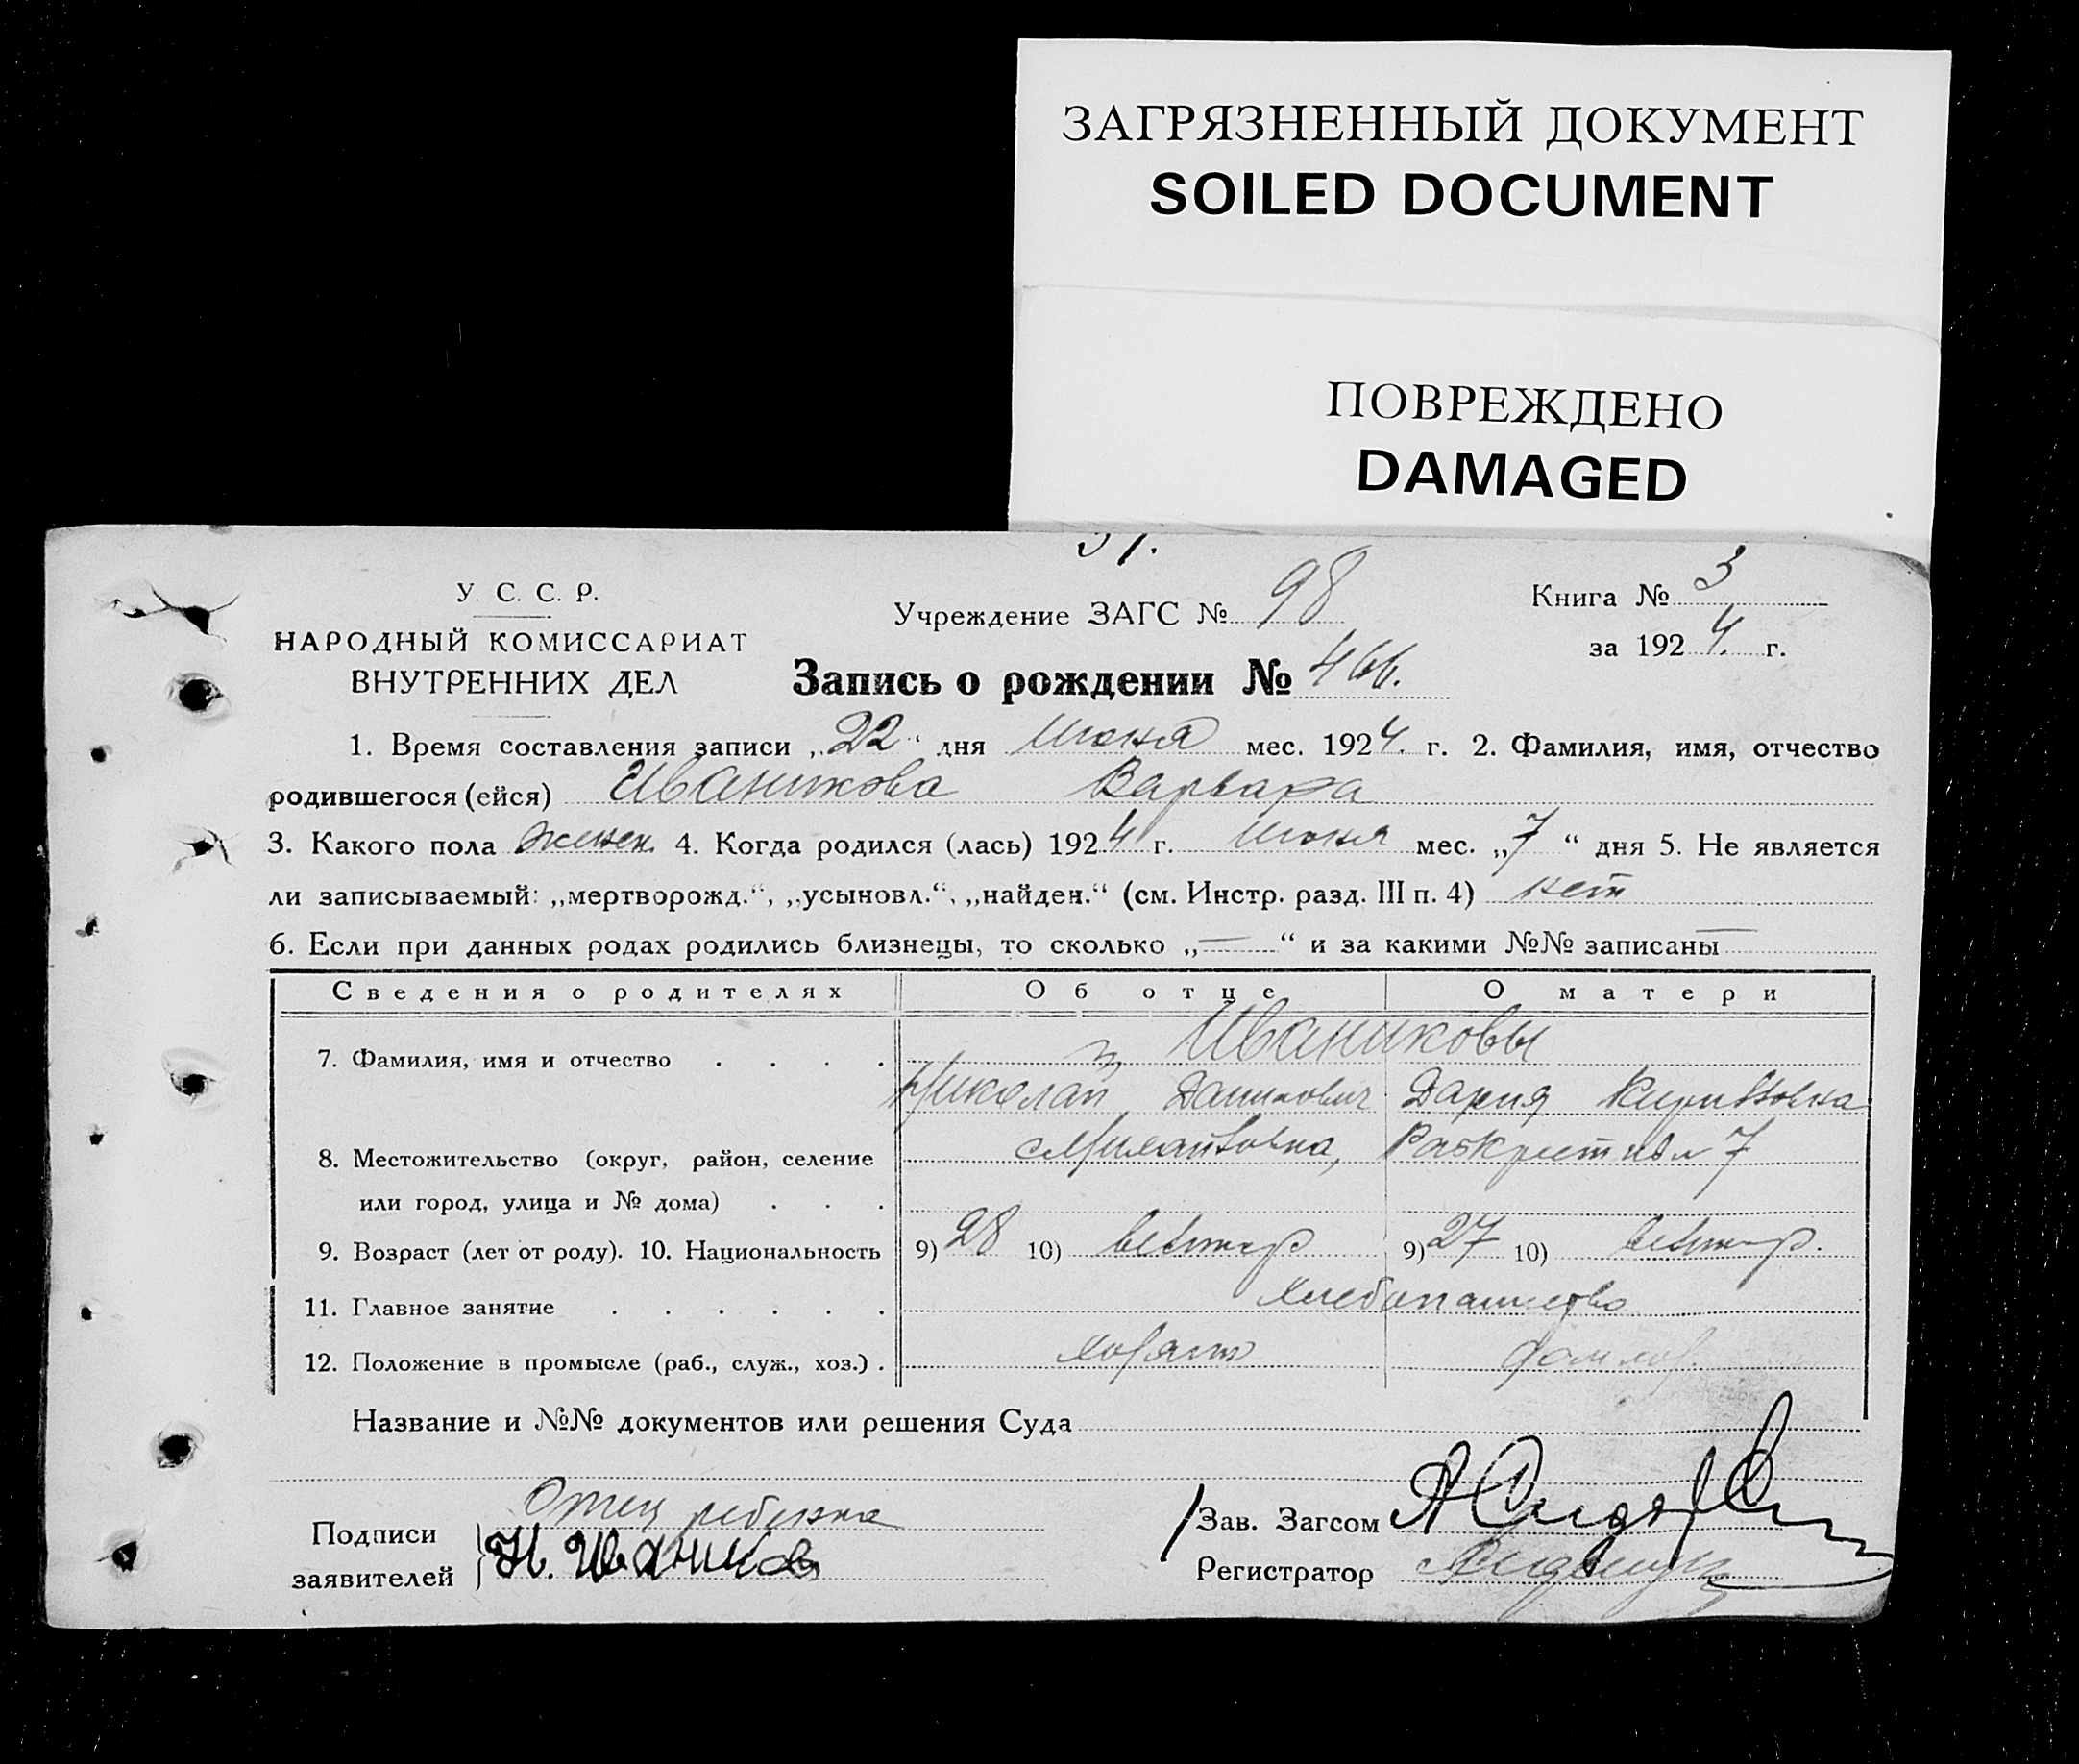 ЗАГРЯЗНЕННЫЙ ДОКУМЕНТ
SOILED DOCUMENT
ПОВРЕЖДЕНО
DAMAGED
У. С. С. Р.
НАРОДНЫЙ КОМИССАРИАТ
ВНУТРЕННИХ ДЕЛ
Учреждение ЗАГС № 98
Книга № 3
за 1924. г.
Запись о рождении № 466.
1. Время составления записи „22“ дня Июня мес. 1924. г. 2. Фамилия, имя, отчество
родившегося (ейся) Иваникова Варвара
3. Какого пола женск. 4. Когда родился (лась) 1924 г. Июня мес. „7“ дня 5. Не является
ли записываемый: „мертворожд.“, „усыновл.“, „найден.“ (см. Инстр. разд. III п. 4) нет
6. Если при данных родах родились близнецы, то сколько „—“ и за какими №№ записаны —
Сведения о родителях Об отце О матери
7. Фамилия, имя и отчество . . . . Иваниковы
Николай Данилович Дария
8. Местожительство (округ, район, селение
или город, улица и № дома) . . . 7
9. Возраст (лет от роду). 10. Национальность 9) 28 10) 9) 27 10)
11. Главное занятие . . . . . . Хлебопашество
12. Положение в промысле (раб., служ., хоз.) .
Название и №№ документов или решения Суда
Отец ребенка
Подписи
заявителей Н. Иваников
Зав. Загсом
Регистратор